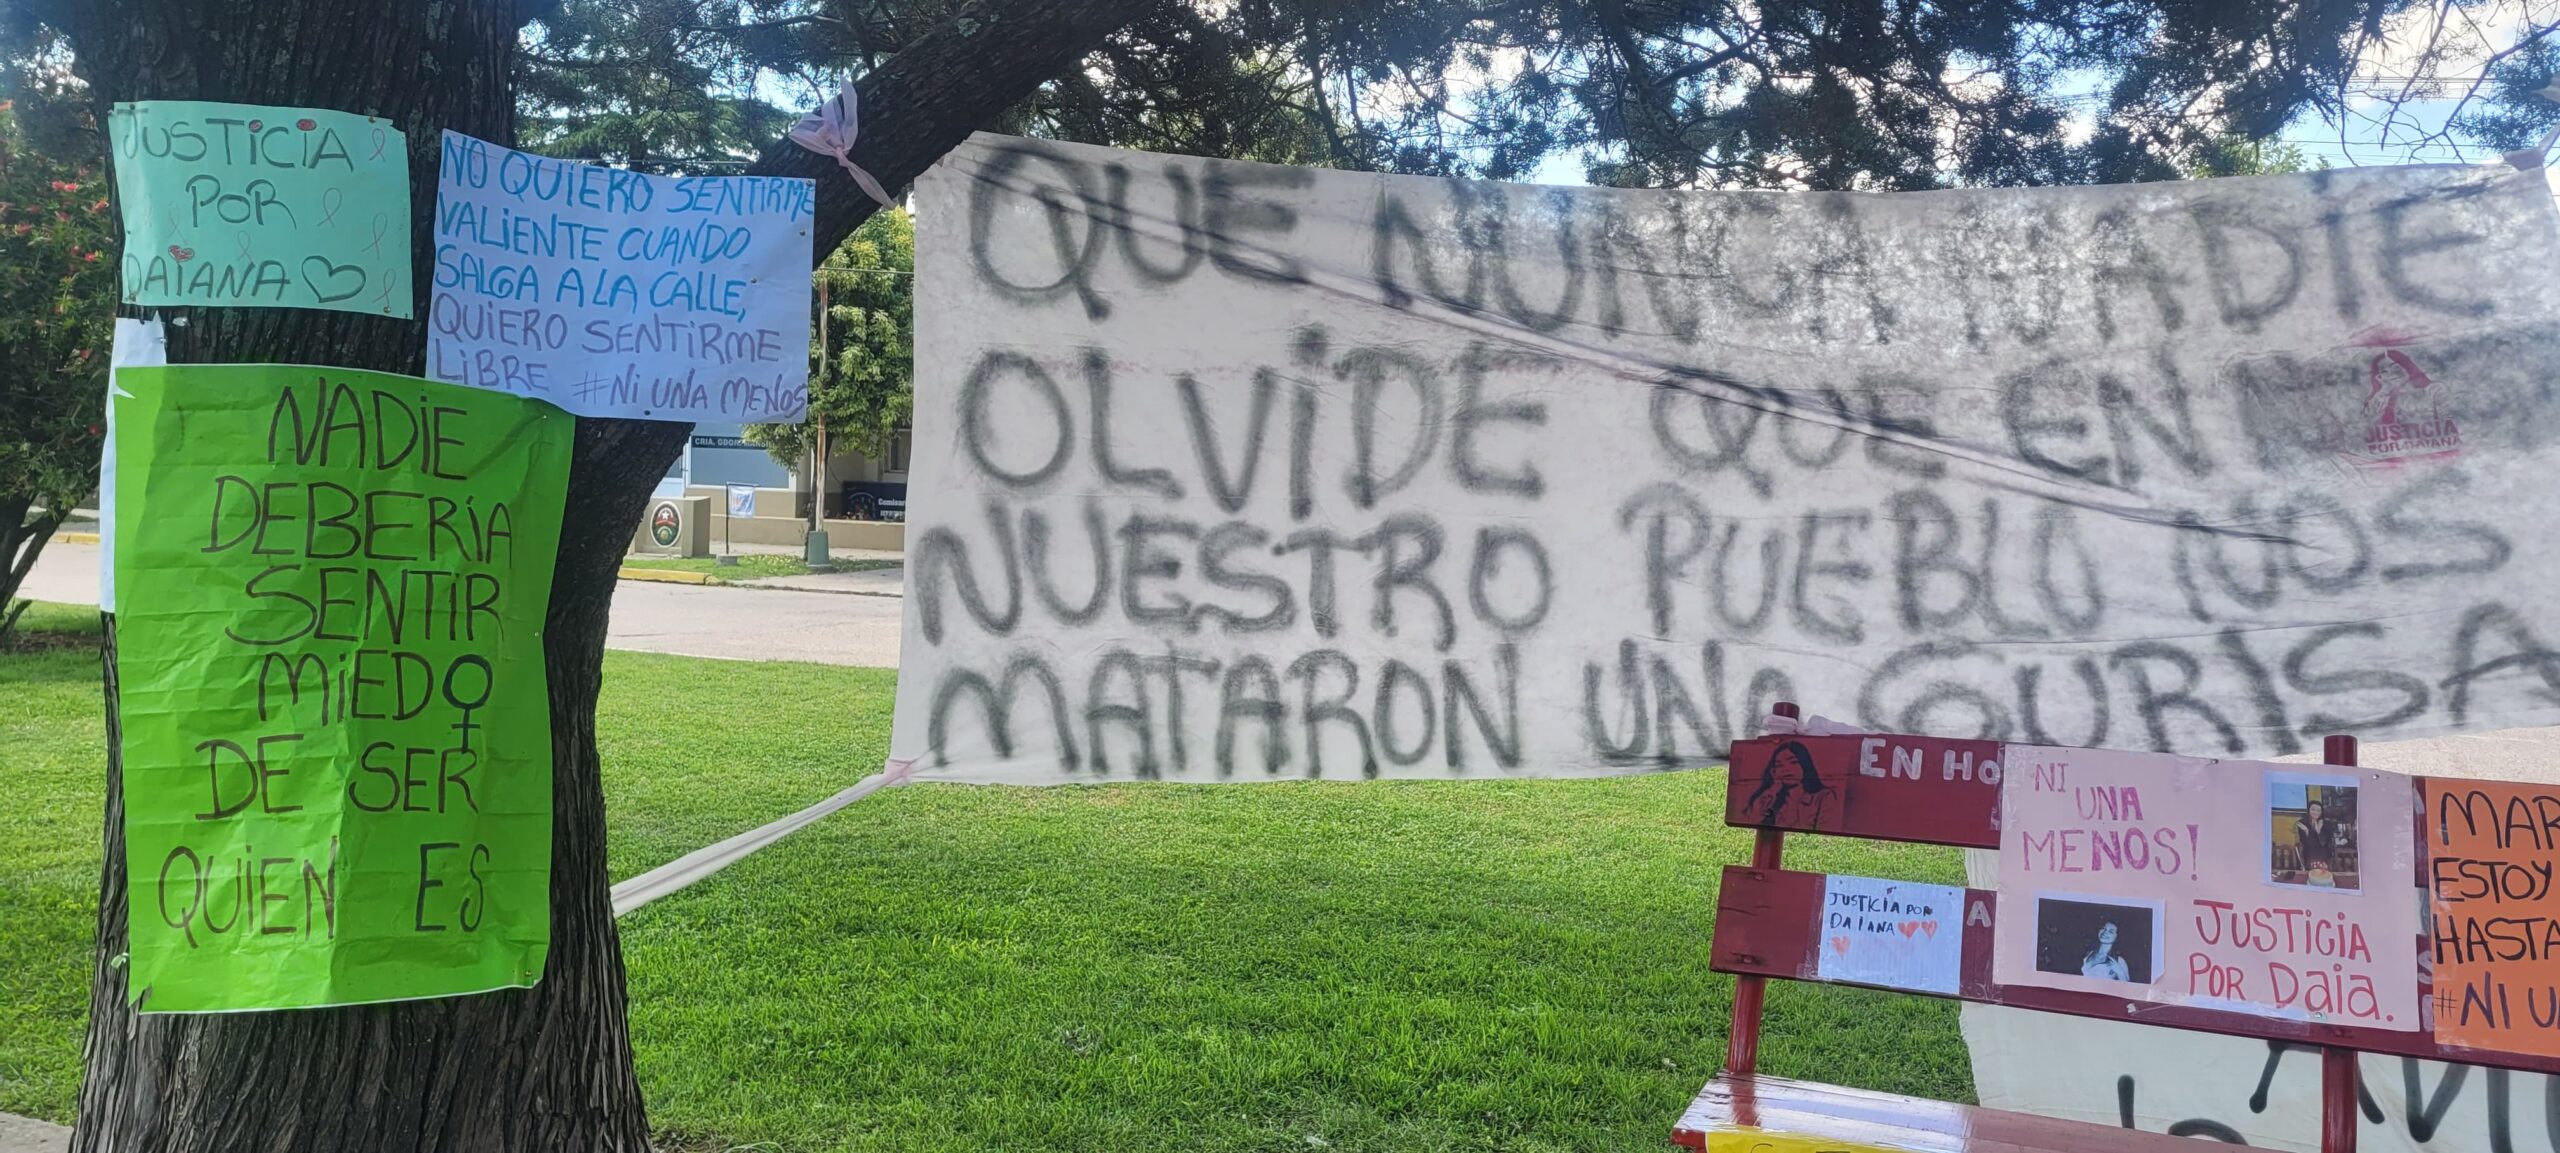 JUSTICIA
POR
DAIANA
NO QUIERO SENTIRME
VALIENTE CUANDO
SALGA A LA CALLE,
QUIERO SENTIRME
LIBRE #NI UNA MENOS
NADIE
DEBERIA
SENTIR
MIEDO
DE SER
QUIEN ES
QUE NUNCA NADIE
OLVIDE QUE EN
NUESTRO PUEBLO NOS
MATARON UNA GURISA
JUSTICIA
POR DAIANA
CRIA. GDOR.
EN HO
A
JUSTICIA POR
DAIANA
NI
UNA
MENOS!
JUSTICIA
POR DAIA.
MAR
ESTOY
HASTA
#NI U